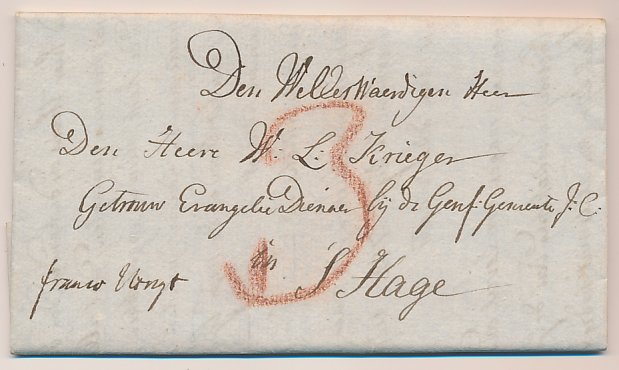 Den WelEerWaerdigen Heer
Den Heere W: L: Krieger
Getrouw Evangelie Dienaer bij de Genf: Gemeente J: C:
in S Hage
franco
3